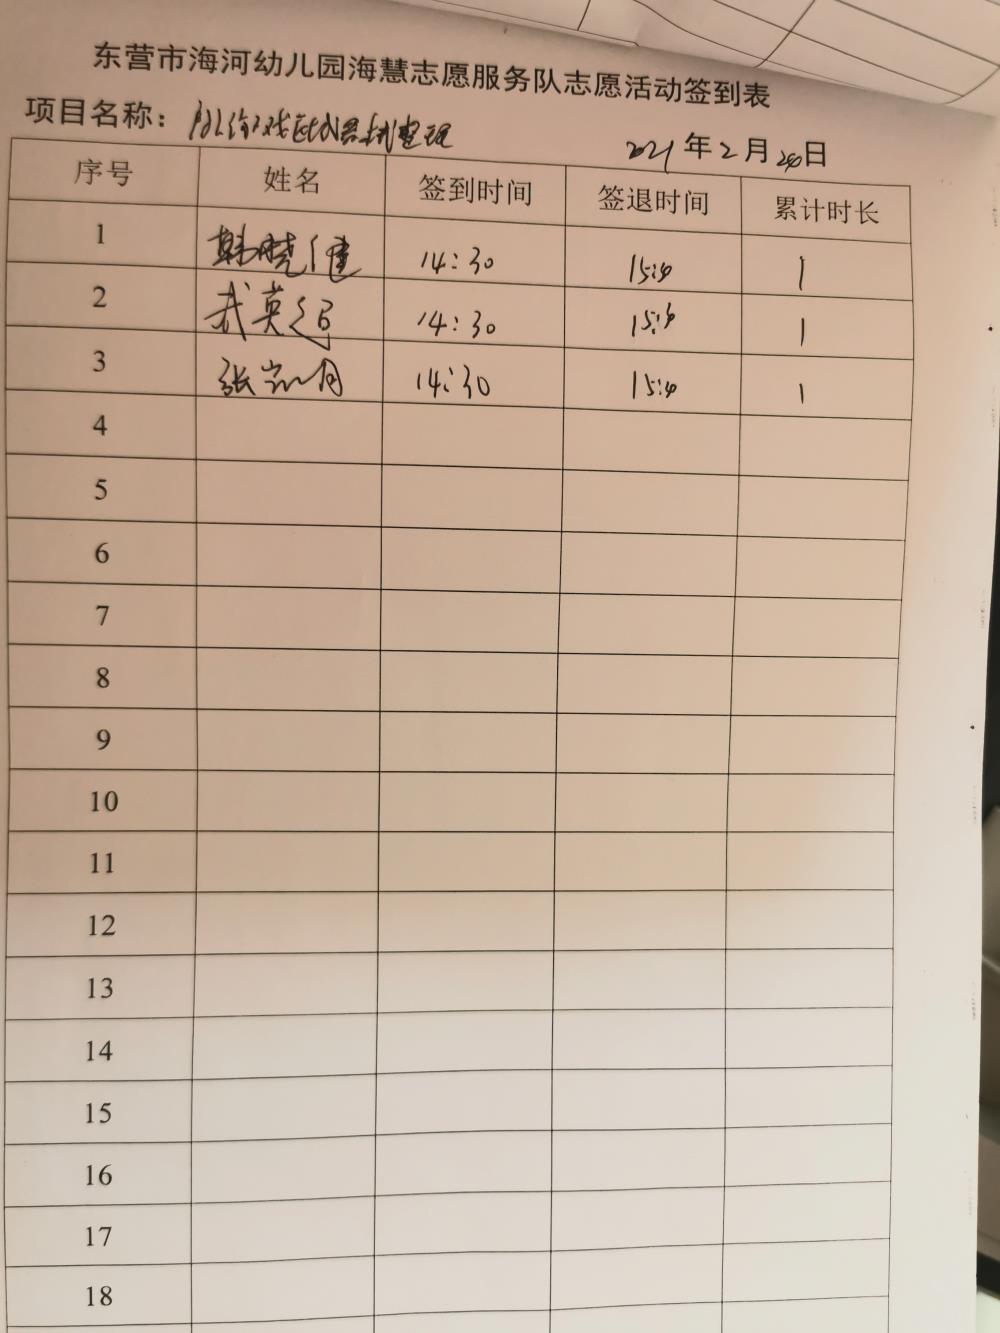 东营市海河幼儿园海慧志愿服务队志愿活动签到表
项目名称： 整理 2021 年 2 月 日
序号 姓名 签到时间 签退时间 累计时长
1 韩晓健 14:30 1
2 武英 14:30 15:30 1
3 张 14:30 1
4
5
6
7
8
9
10
11
12
13
14
15
16
17
18